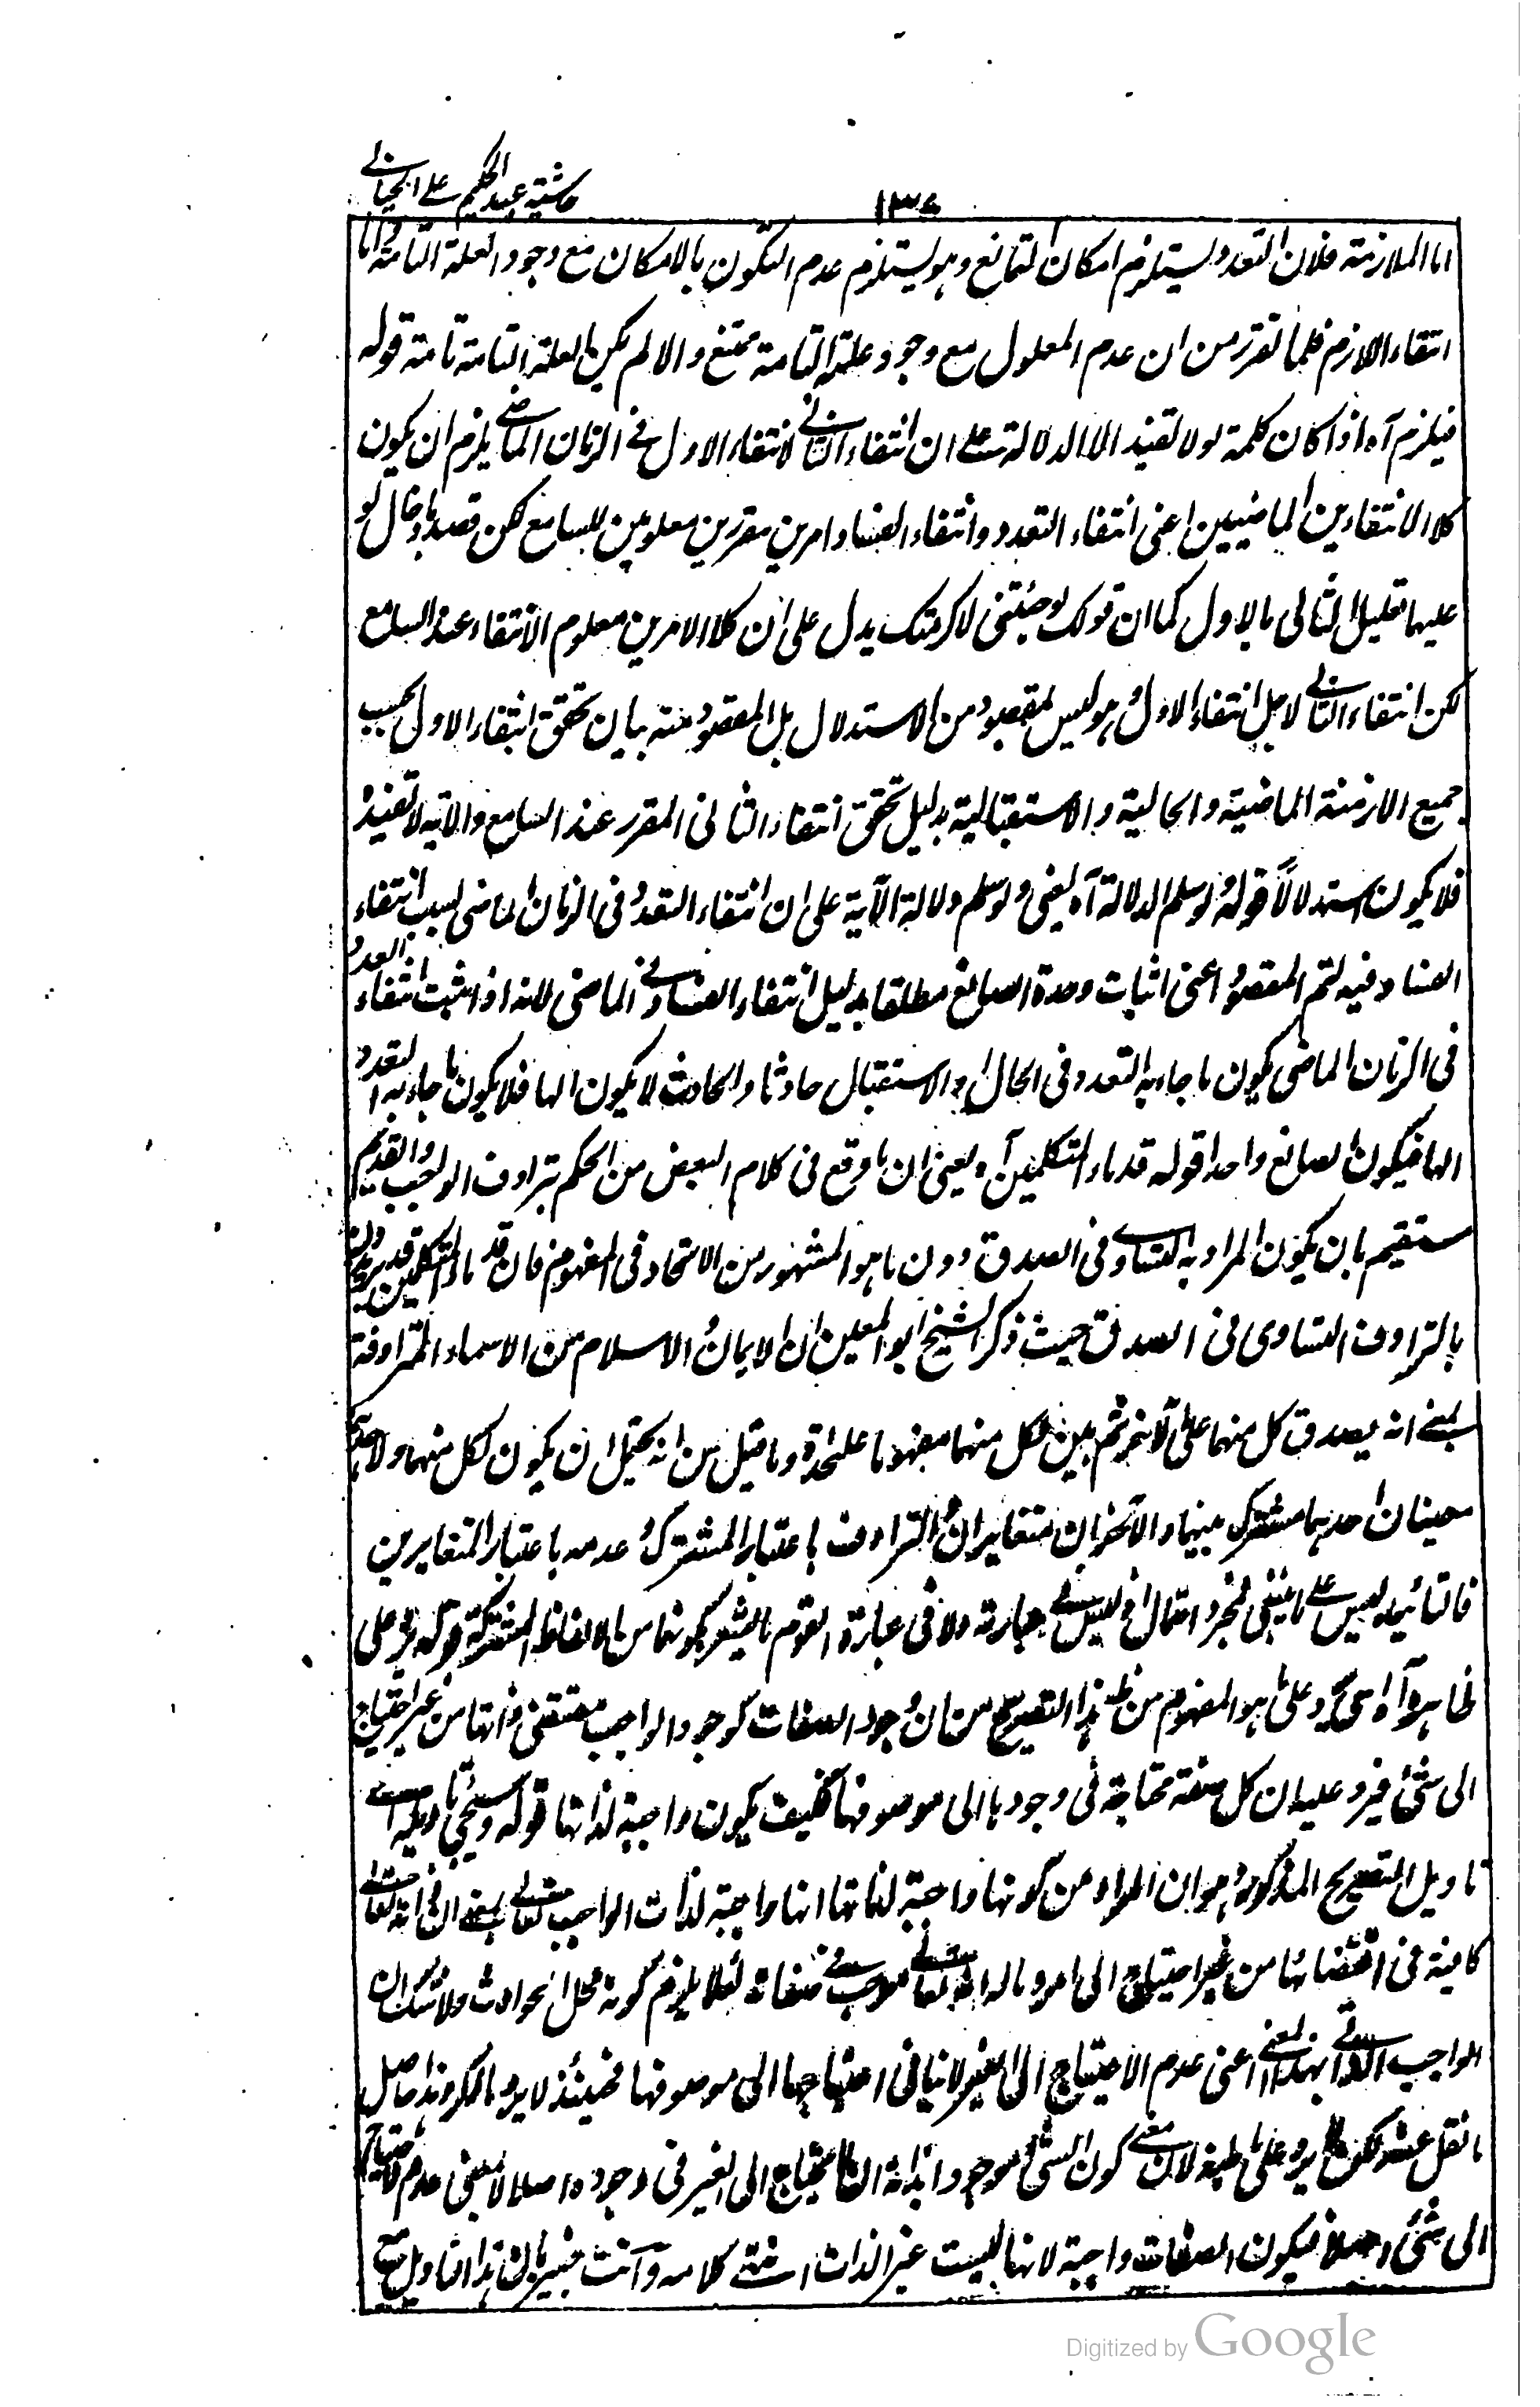 حاشية عبد الحكيم على الخيالي
١٣٦
اما الملازمة فلان التعدد يستلزم امكان التمانع وهو يستلزم عدم التكون بالامكان مع وجود العلة التامة واما
انتفاء اللازم فلما تقرر من ان عدم المعلول مع وجود علته التامة ممتنع والا لم يكن العلة التامة تامة قوله
فيلزم آه اذا كان كلمة لو لا تفيد الا الدلالة على ان انتفاء الثاني لانتفاء الاول في الزمان الماضي يلزم ان يكون
كلا الانتفاءين الماضيين اعنى انتفاء التعدد وانتفاء الفساد امرين مقررين معلومين للسامع لكن قصد بادخال لو
عليهما تعليل الثانى بالاول كما ان قولك لو جئتنى لاكرمتك يدل على ان كلا الامرين معلوم الانتفاء عند السامع
لكن انتفاء الثاني لاجل انتفاء الاول وهو ليس لمقصود من الاستدلال بل المقصود منه بيان تحقق انتفاء الاول بحسب
جميع الازمنة الماضية والحالية والاستقبالية بدليل تحقق انتفاء الثانى المقرر عند السامع والاية لا تفيده
فلا يكون استدلالا قوله لو سلم الدلالة آه يعنى ولو سلم دلالة الآية على ان انتفاء التعدد فى الزمان الماضى بسبب انتفاء
الفساد فيه لتم المقصود اعنى اثبات وحدة الصانع مطلقا بدليل انتفاء الفساد في الماضى لانه اذا ثبت انتفاء التعدد
فى الزمان الماضى يكون ما جاء به التعدد فى الحال او الاستقبال حادثا والحادث لا يكون الها فلا يكون ما جاء به التعدد
الها فيكون الصانع واحدا قوله قدماء المتكلمين آه يعنى ان ما وقع فى كلام البعض من الحكم بترادف الواجب والقديم
مستقيم بان يكون المراد به التساوي فى الصدق دون ما هو المشهور من الاتحاد فى المفهوم فان قدماء المتكلمين قد يريدون
بالترادف التساوى فى الصدق حيث ذكر الشيخ ابو المعين ان الايمان والاسلام من الاسماء المترادفة
بمعنى انه يصدق كل منهما على الآخر ثم بين لكل منهما مفهوما على حدة وما قيل من انه يحتمل ان يكون لكل منهما
معنيان احدهما مشترك بينهما والآخران متغايران والترادف باعتبار المشترك وعدمه باعتبار المتغايرين
فالتائيد ليس على ما ينبغى فمجرد احتمال اذ ليس في عبارته ولا فى عبارة القوم ما يشعر بكونهما من الالفاظ المشتركة قوله يرد على
ظاهره آه اى يرد على ما هو المفهوم من ظاهر هذا التصريح من ان وجود الصفات كوجود الواجب مقتضى ذاتها من غير احتياج
الى شئ فيرد عليه ان كل صفة محتاجة فى وجودها الى موصوفها فكيف يكون واجبة لذاتها قوله وسيجئ تاويله اى
تاويل التصريح المذكور وهو ان المراد من كونها واجبة لذاتها انها واجبة لذات الواجب تعالى بمعنى ان ذاته تعالى
كافية فى اقتضائها من غير احتياج الى امر وماله انه تعالى موجب في صفاته لئلا يلزم كونه محل الحوادث ولا شك ان
الواجب الذاتي بهذا المعنى اعنى عدم الاحتياج الى الغير لا ينافى احتياجها الى موصوفها فحينئذ لا يرد ما ذكر وهذا حاصل
ما نقل عنه لكن يرد على ما لان معنى كون الشئ موجودا بذاته ان لا يحتاج الى الغير فى وجوده اصلا لا بمعنى عدم الاحتياج
الى شئ اصلا فيكون الصفات واجبة لانها ليست غير الذات انتهى كلامه وانت خبير بان هذا التاويل
Digitized by Google